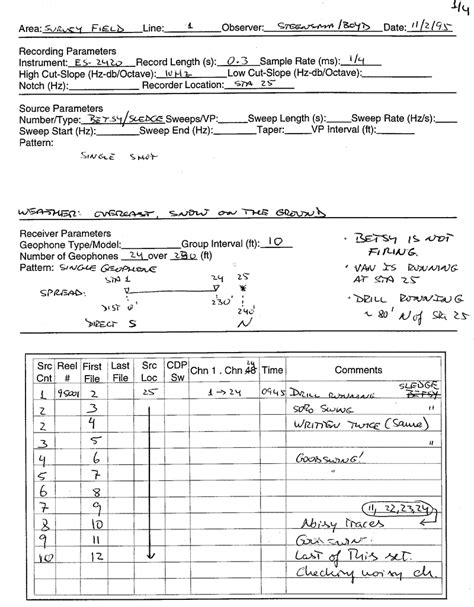 1/4
Area: SURVEY FIELD Line: 1 Observer: STEENSMA/BOYD Date: 11/2/95
Recording Parameters
Instrument: ES-2420 Record Length (s): 0.3 Sample Rate (ms): 1/4
High Cut-Slope (Hz-db/Octave): Low Cut-Slope (Hz-db/Octave):
Notch (Hz): Recorder Location: STA 25
Source Parameters
Number/Type: BETSY/SLEDGE Sweeps/VP: Sweep Length (s): Sweep Rate (Hz/s):
Sweep Start (Hz): Sweep End (Hz): Taper: VP Interval (ft):
Pattern:
SINGLE SHOT
WEATHER: OVERCAST, SNOW ON THE GROUND
Receiver Parameters
Geophone Type/Model: Group Interval (ft): 10
Number of Geophones 24 over 230 (ft)
Pattern: SINGLE GEOPHONE
STA 1 24 25
SPREAD:
DIST 0' 230' 240'
DIRECT S N
• BETSY IS NOT FIRING.
• VAN IS RUNNING AT STA 25
• DRILL RUNNING ~ 80' N of Sta 25
Src Cnt Reel # First File Last File Src Loc CDP Sw Chn 1 . Chn 48 24 Time Comments
1 95001 2 25 1 → 24 0945 DRILL RUNNING SLEDGE BETSY
2 3 SWING "
2 4 WRITTEN TWICE (Same)
3 5 "
4 6 GOOD SWING!
5 7 "
6 8
7 9 11, 22, 23, 24
8 10 Noisy Traces
9 11
10 12 Last of This set.
Checking noisy ch.